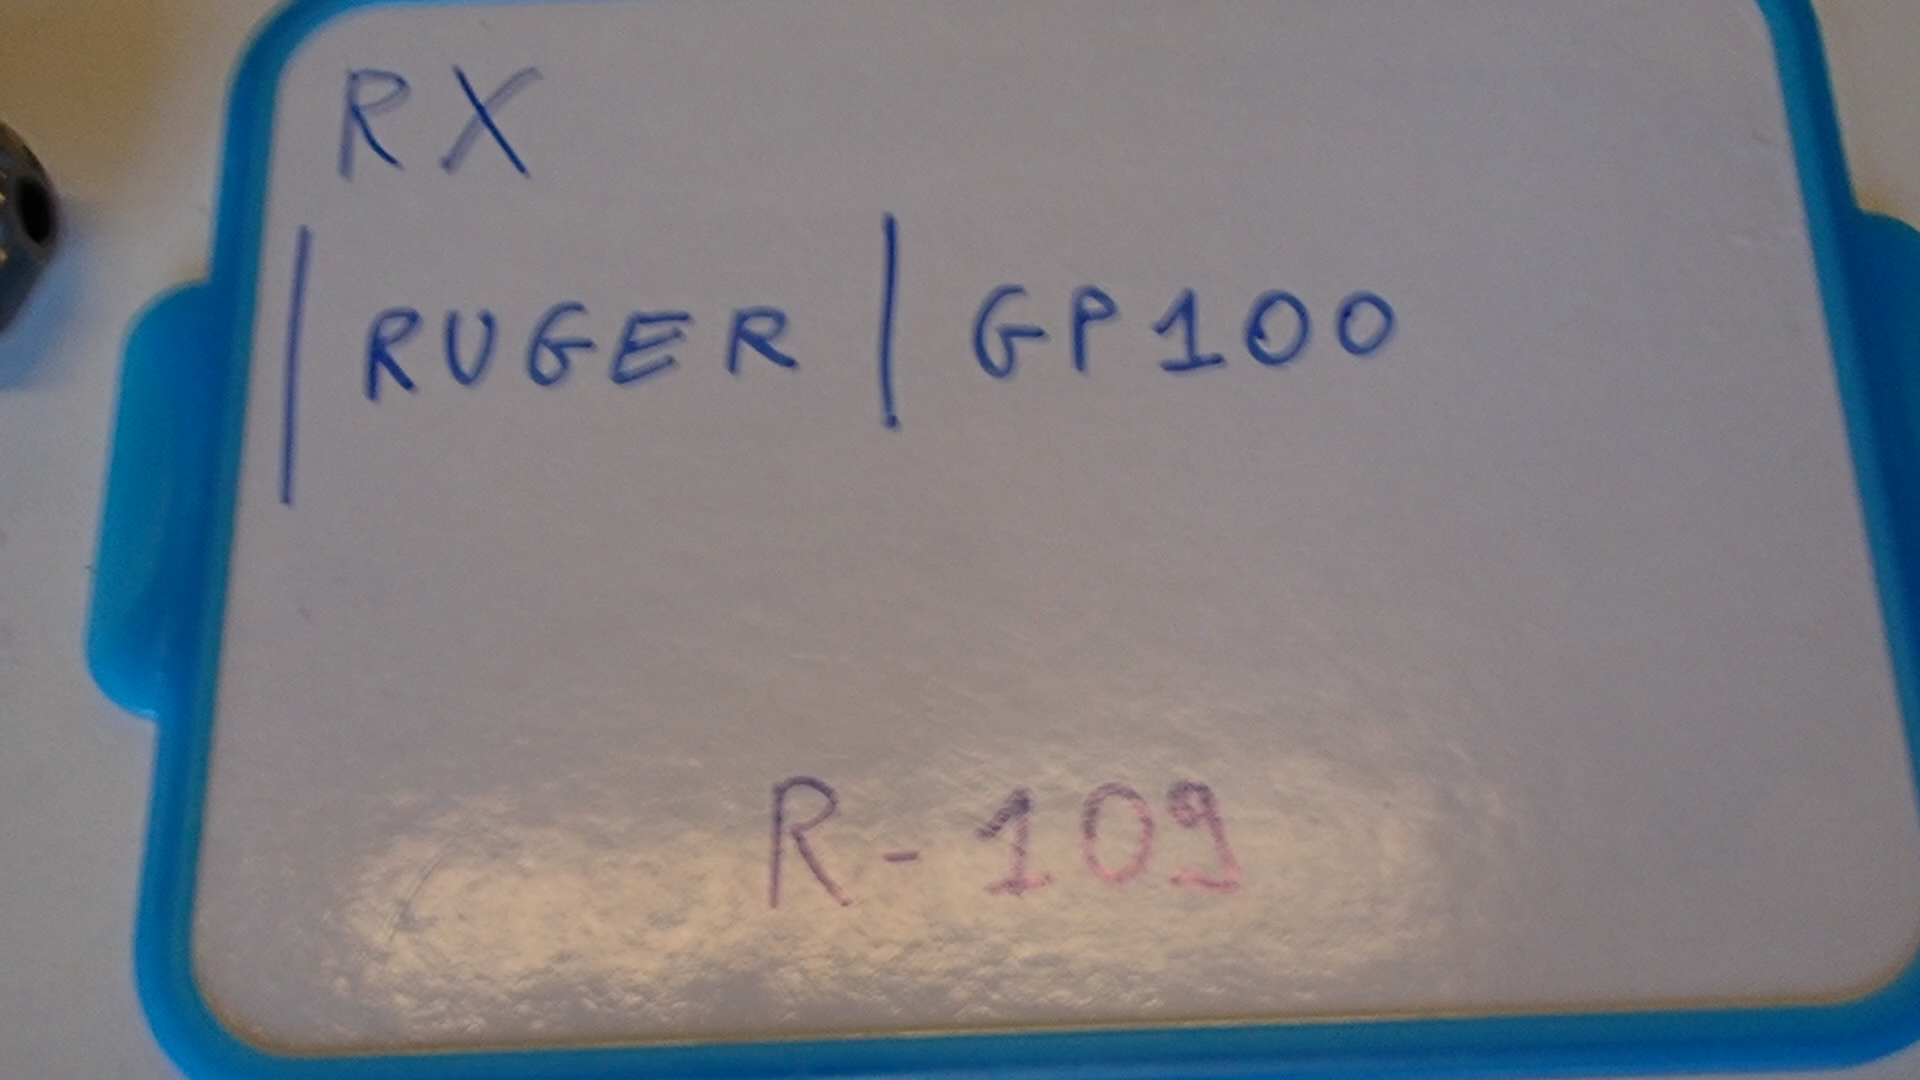 RX
| RUGER | GP100
R-109